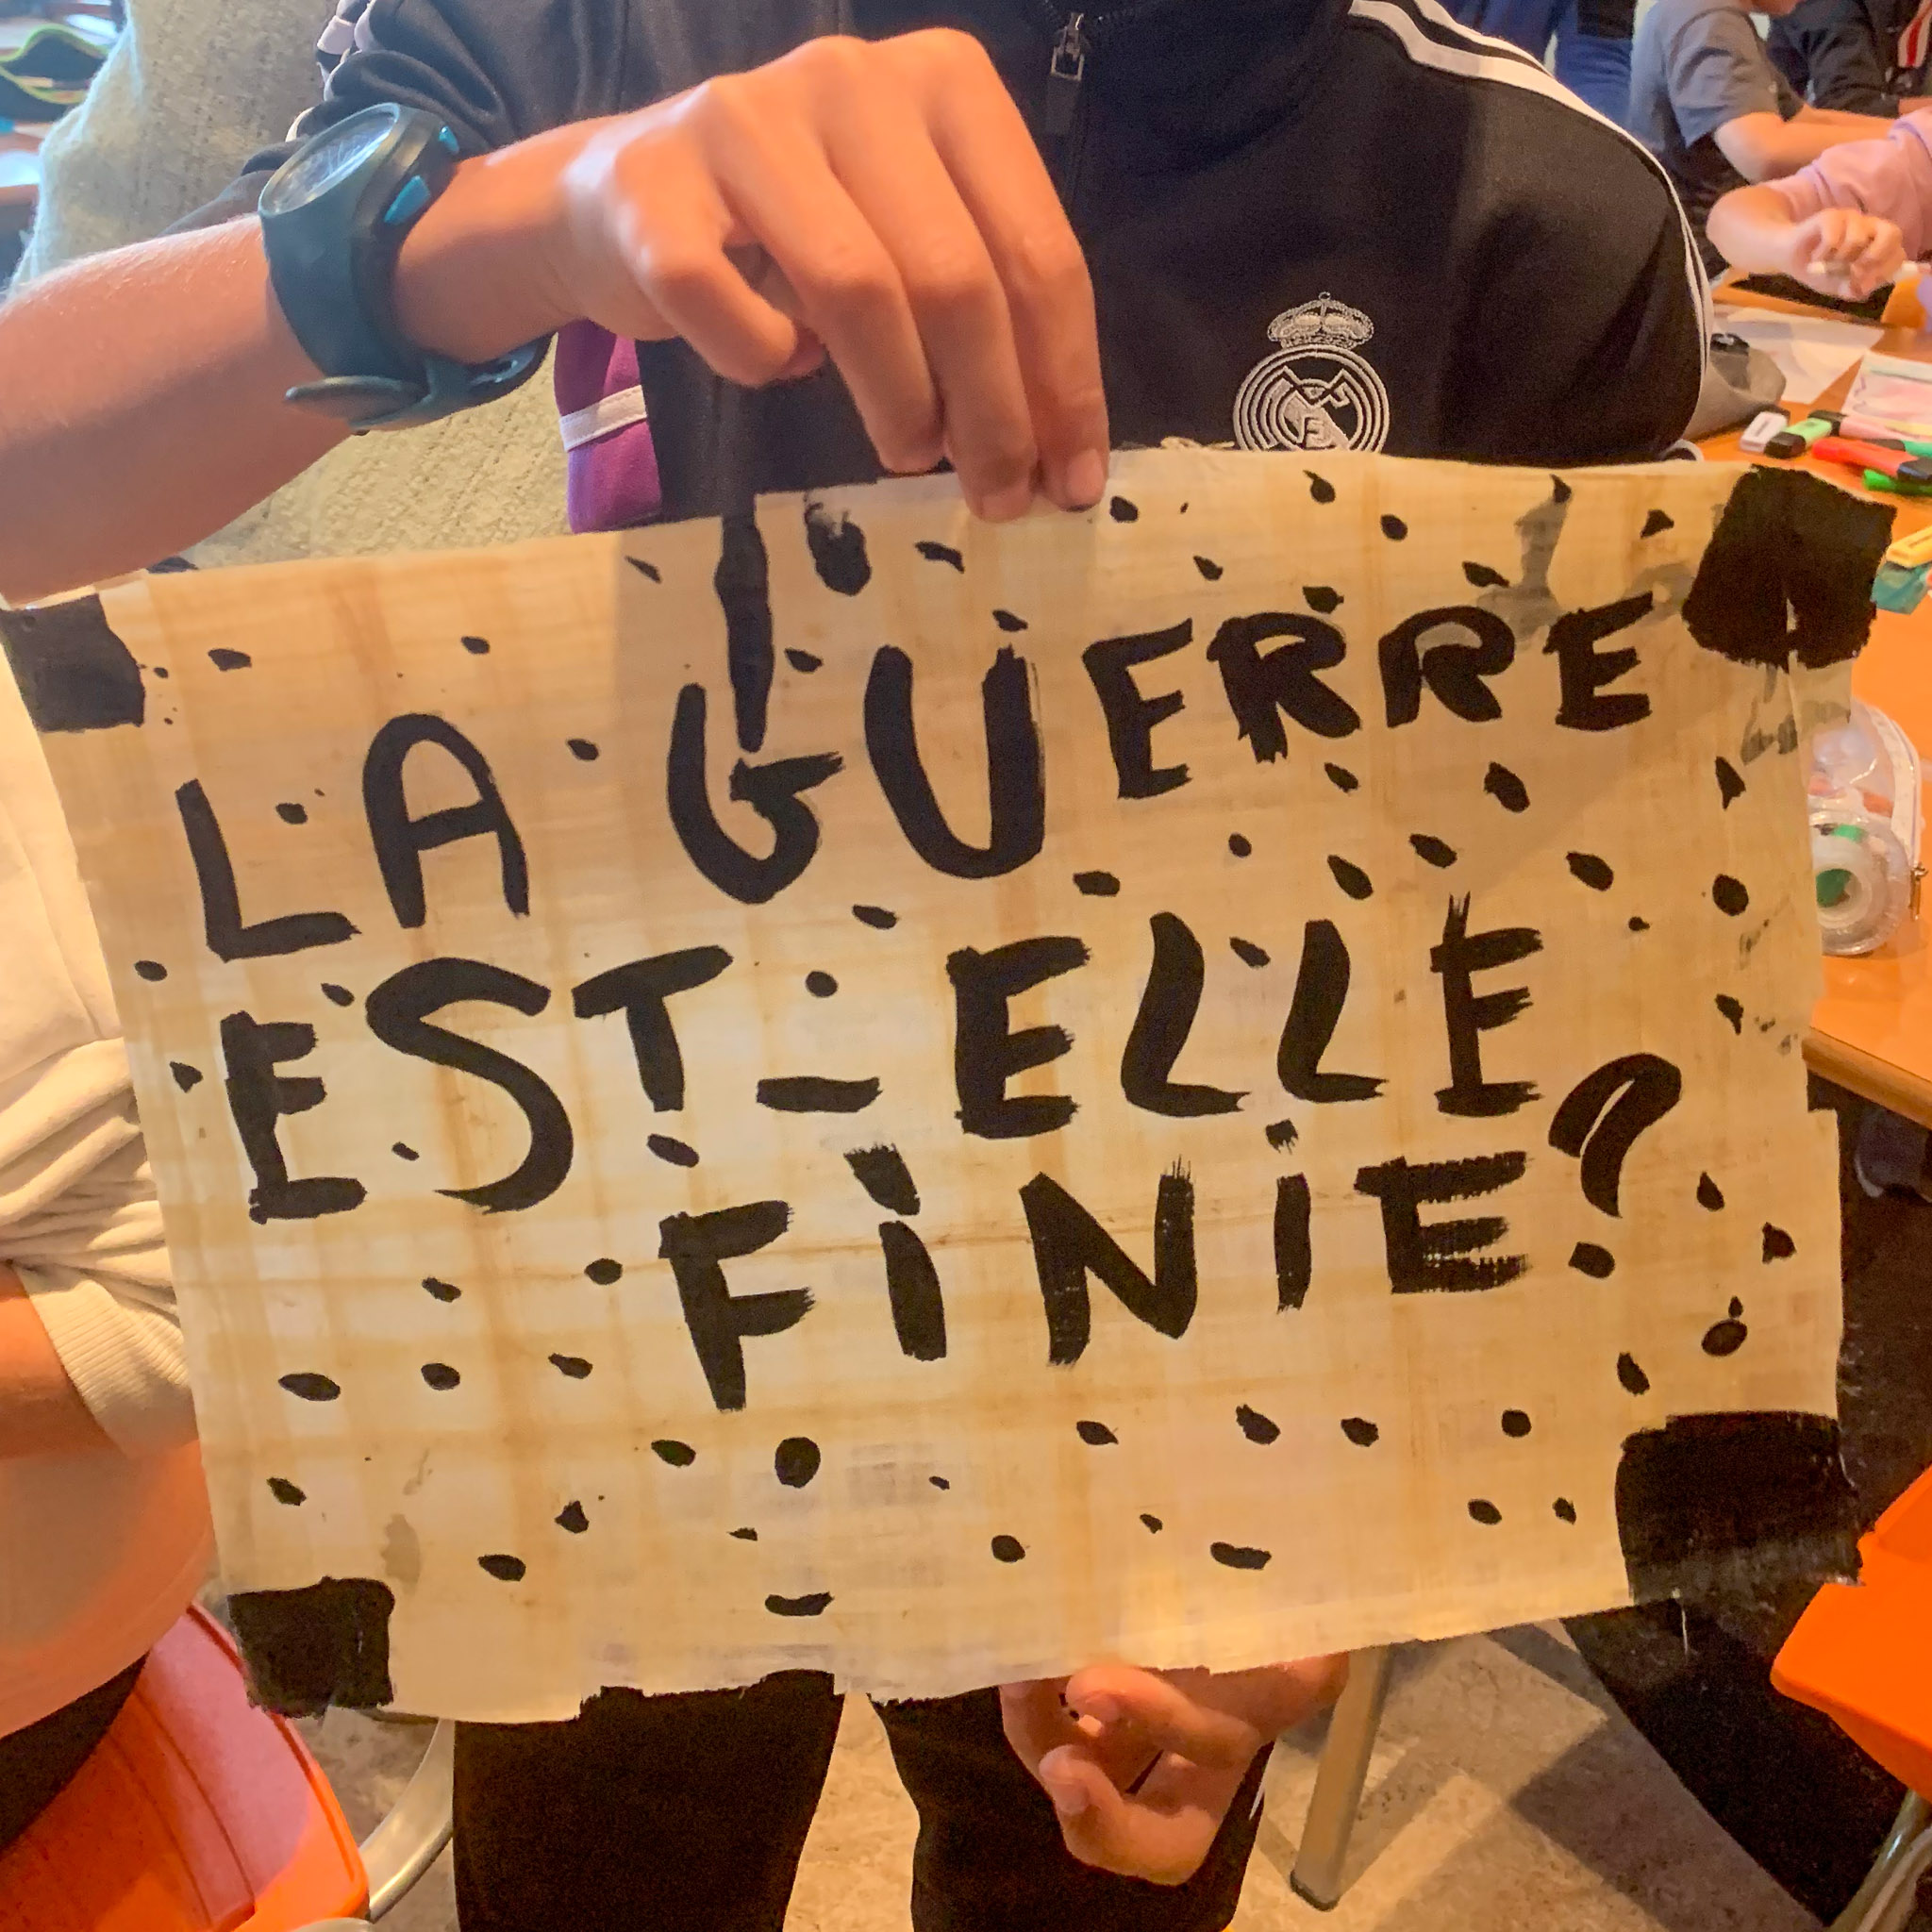 LA GUERRE
EST-ELLE
FINIE?